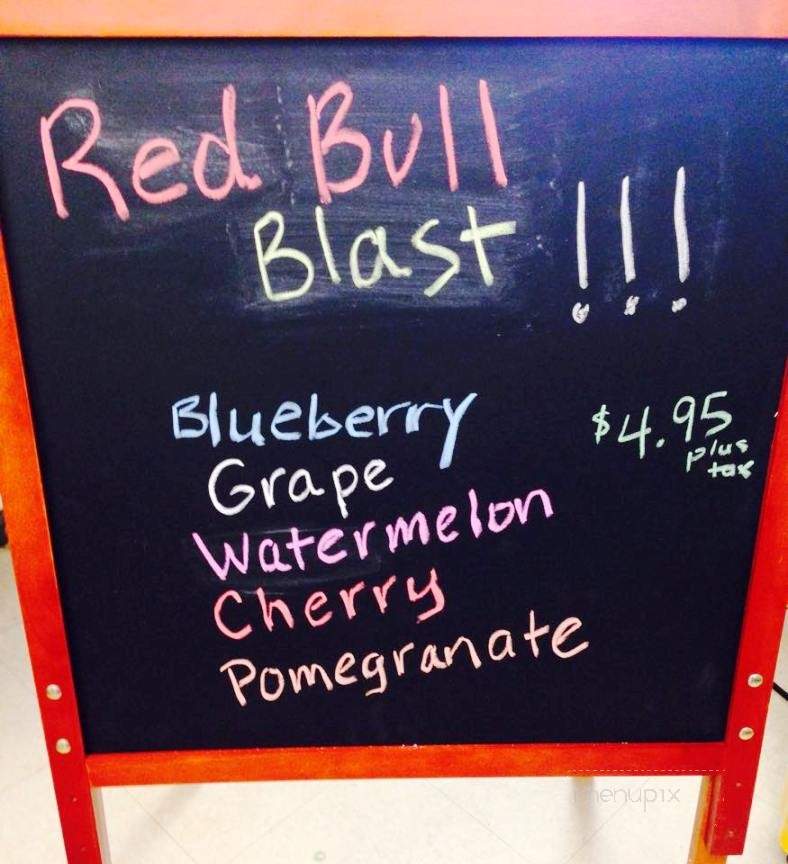 Red Bull
Blast !!!
Blueberry $4.95
plus
tax
Grape
Watermelon
Cherry
Pomegranate
menupix